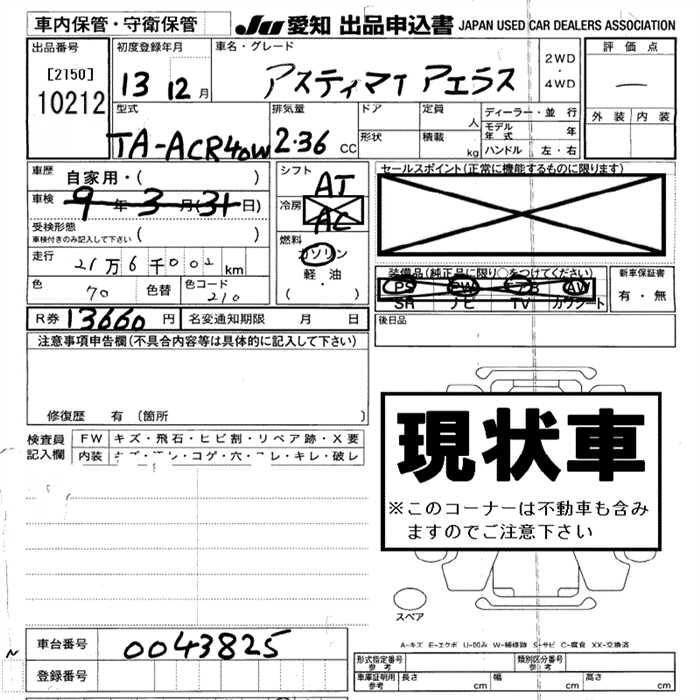 車内保管・守衛保管
JU 愛知 出品申込書 JAPAN USED CAR DEALERS ASSOCIATION
出品番号 初度登録年月 車名・グレード 2WD ・ 4WD 評価点
[2150]
10212 13 12月 アスティマT アエラス
型式 排気量 ドア 定員 人 ディーラー・並行 外装 内装
TA-ACR40W 2.36 CC 形状 積載 kg モデル年式 年
ハンドル 左・右
車歴 自家用・( ) シフト AT セールスポイント(正常に機能するものに限ります)
車検 9年3月(31日) 冷房 AC
受検形態 車検付きのみ記入して下さい ( )
燃料 ガソリン 軽・油 ( ・ )
走行 21万6千002km
装備品(純正品に限り○をつけてください) 新車保証書
PS PW エアB AW
SR ナビ TV カワシート 有・無
色 70 色替 色コード 210
R券 13660円 名変通知期限 月 日 後日品
注意事項申告欄(不具合内容等は具体的に記入して下さい)
修復歴 有 〔箇所
検査員記入欄 FW キズ・飛石・ヒビ割・リペア跡・X要
内装 コゲ・穴・キレ・破レ
現状車
※このコーナーは不動車も含みますのでご注意下さい
スペア
A-キズ E-エクボ U-凹み W-補修跡 S-サビ C-腐食 XX-交換済
車台番号 0043825
登録番号
形式指定番号 参考 類別区分番号 参考
車庫証明用 参考 長さ cm 幅 cm 高さ cm